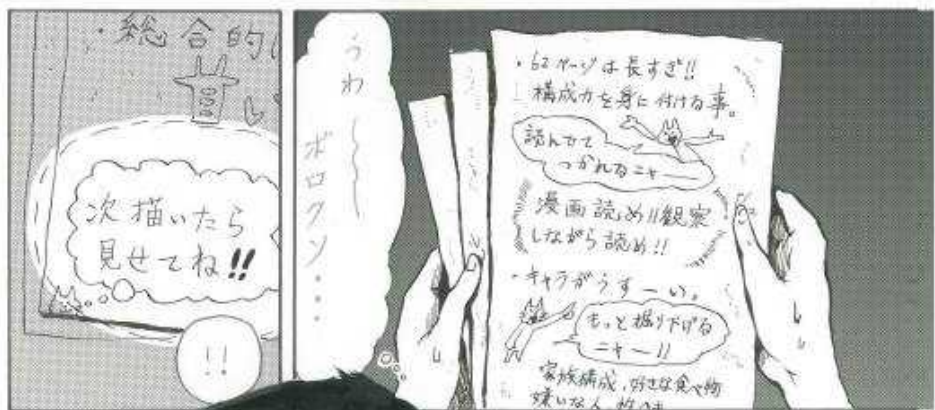 ・62ページは長すぎ!!
構成力を身に付ける事。
読んでて
つかれるニャー
漫画読め!!観察
しながら読め!!
・キャラがうすーい。
もっと掘り下げる
ニャー!!
家族構成、好きな食べ物
嫌いな人、
うわ
〜〜〜
ボロクソ・・・
・総合的
次描いたら
見せてね!!
!!